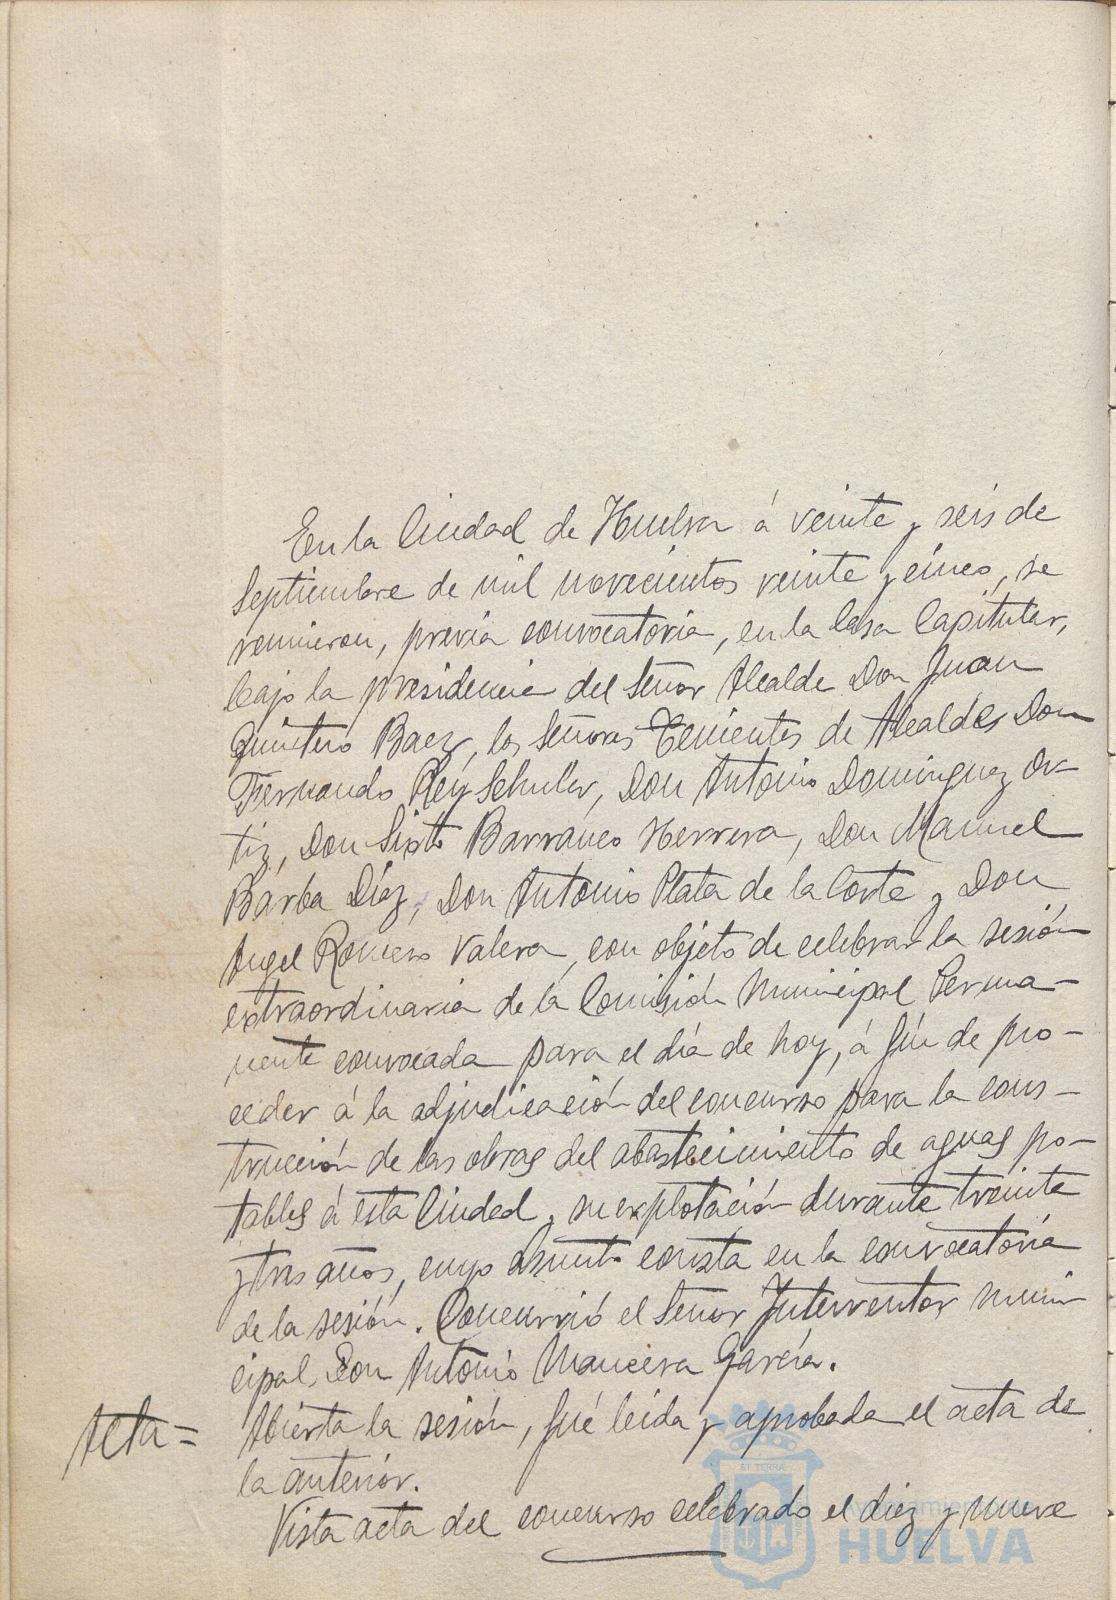 En la Ciudad de Huelva á veinte y seis de
Septiembre de mil novecientos veinte y cinco, se
reunieron, previa convocatoria, en la Casa Capitular,
bajo la presidencia del Señor Alcalde Don Juan
Quintero Baez, los Señores Tenientes de Alcaldes Don
Fernando Rey Schuler, Don Antonio Dominguez Or-
tiz, Don Sixto Barranco Herrera, Don Manuel
Barba Díaz, Don Antonio Plata de la Corte y Don
Angel Romero Valera, con objeto de celebrar la sesión
extraordinaria de la Comisión Municipal Perma-
nente convocada para el día de hoy, á fín de pro-
ceder á la adjudicación del concurso para la cons-
trucción de las obras del abastecimiento de aguas po-
tables á esta Ciudad y su explotación durante treinta
y tres años, cuyo asunto consta en la convocatoria
de la sesión. Concurrió el Señor Interventor muni-
cipal, Don Antonio Mancera García.
Acta= Abierta la sesión, fué leida y aprobada el acta de
la anterior.
Vista acta del concurso celebrado el diez y nueve
ET TERRÆ
Ayuntamiento de
HUELVA